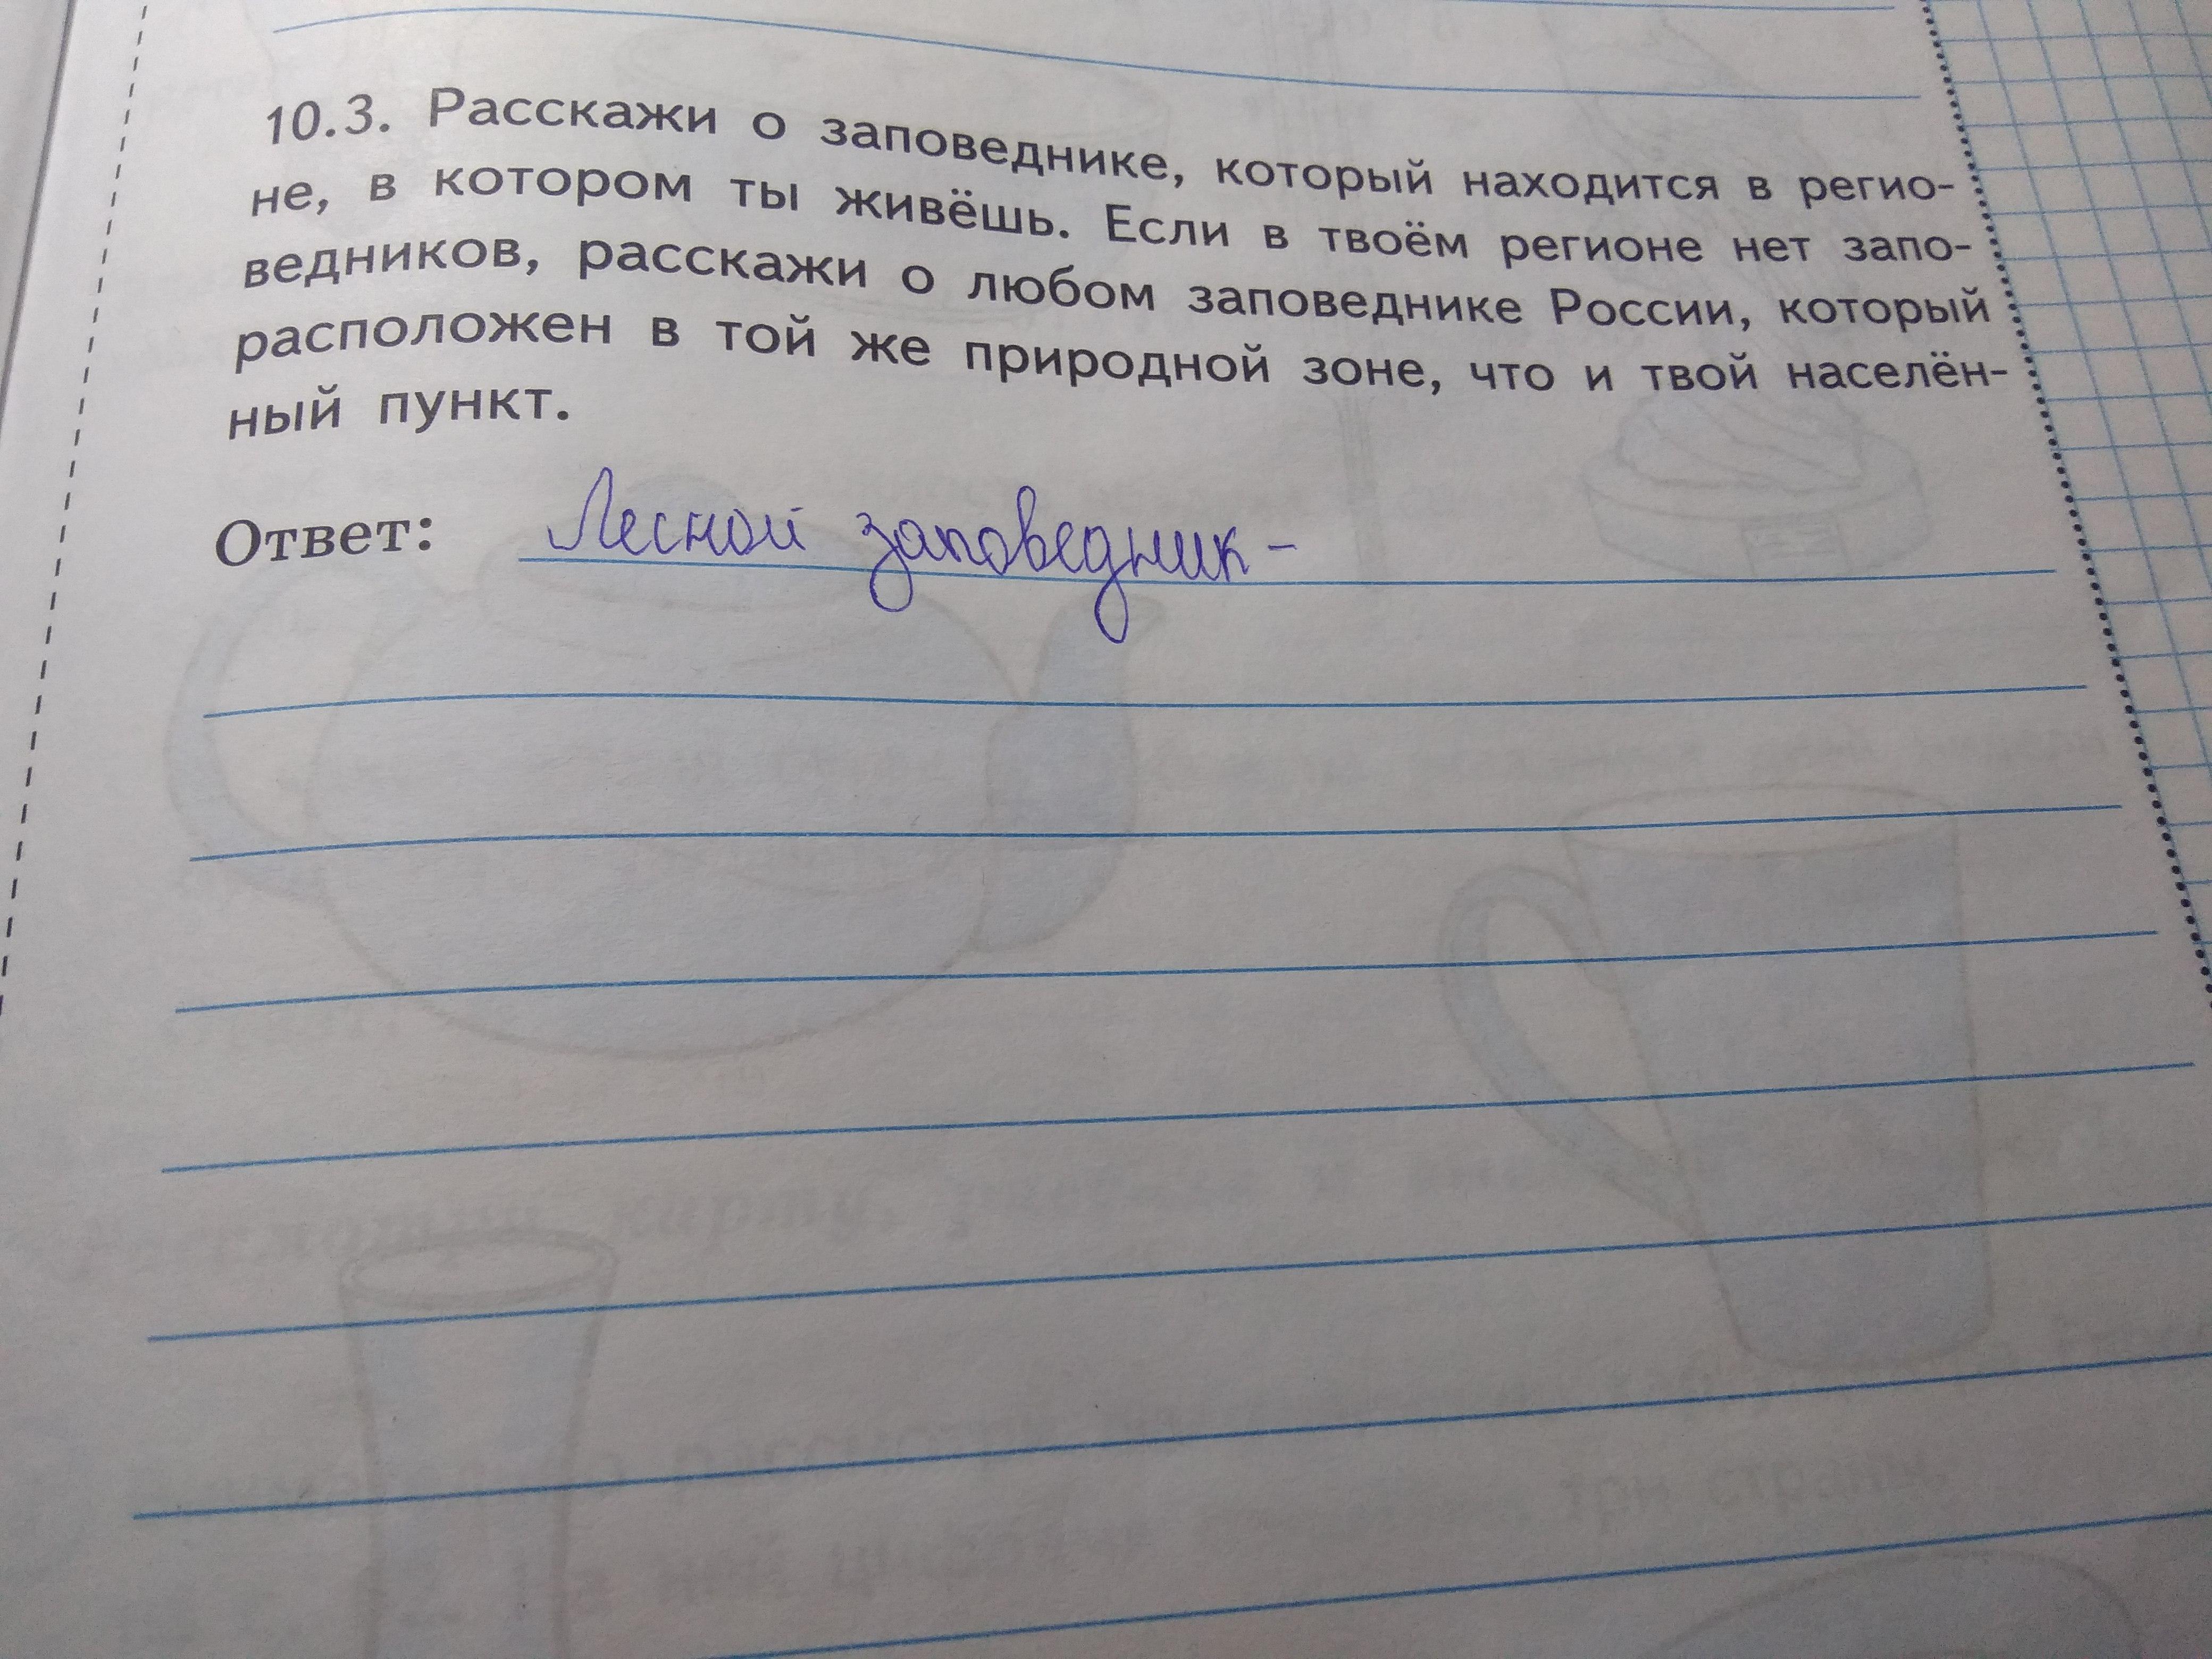 10.3. Расскажи о заповеднике, который находится в регио-
не, в котором ты живёшь. Если в твоём регионе нет запо-
ведников, расскажи о любом заповеднике России, который
расположен в той же природной зоне, что и твой населён-
ный пункт.
Ответ: Лесной заповедник -